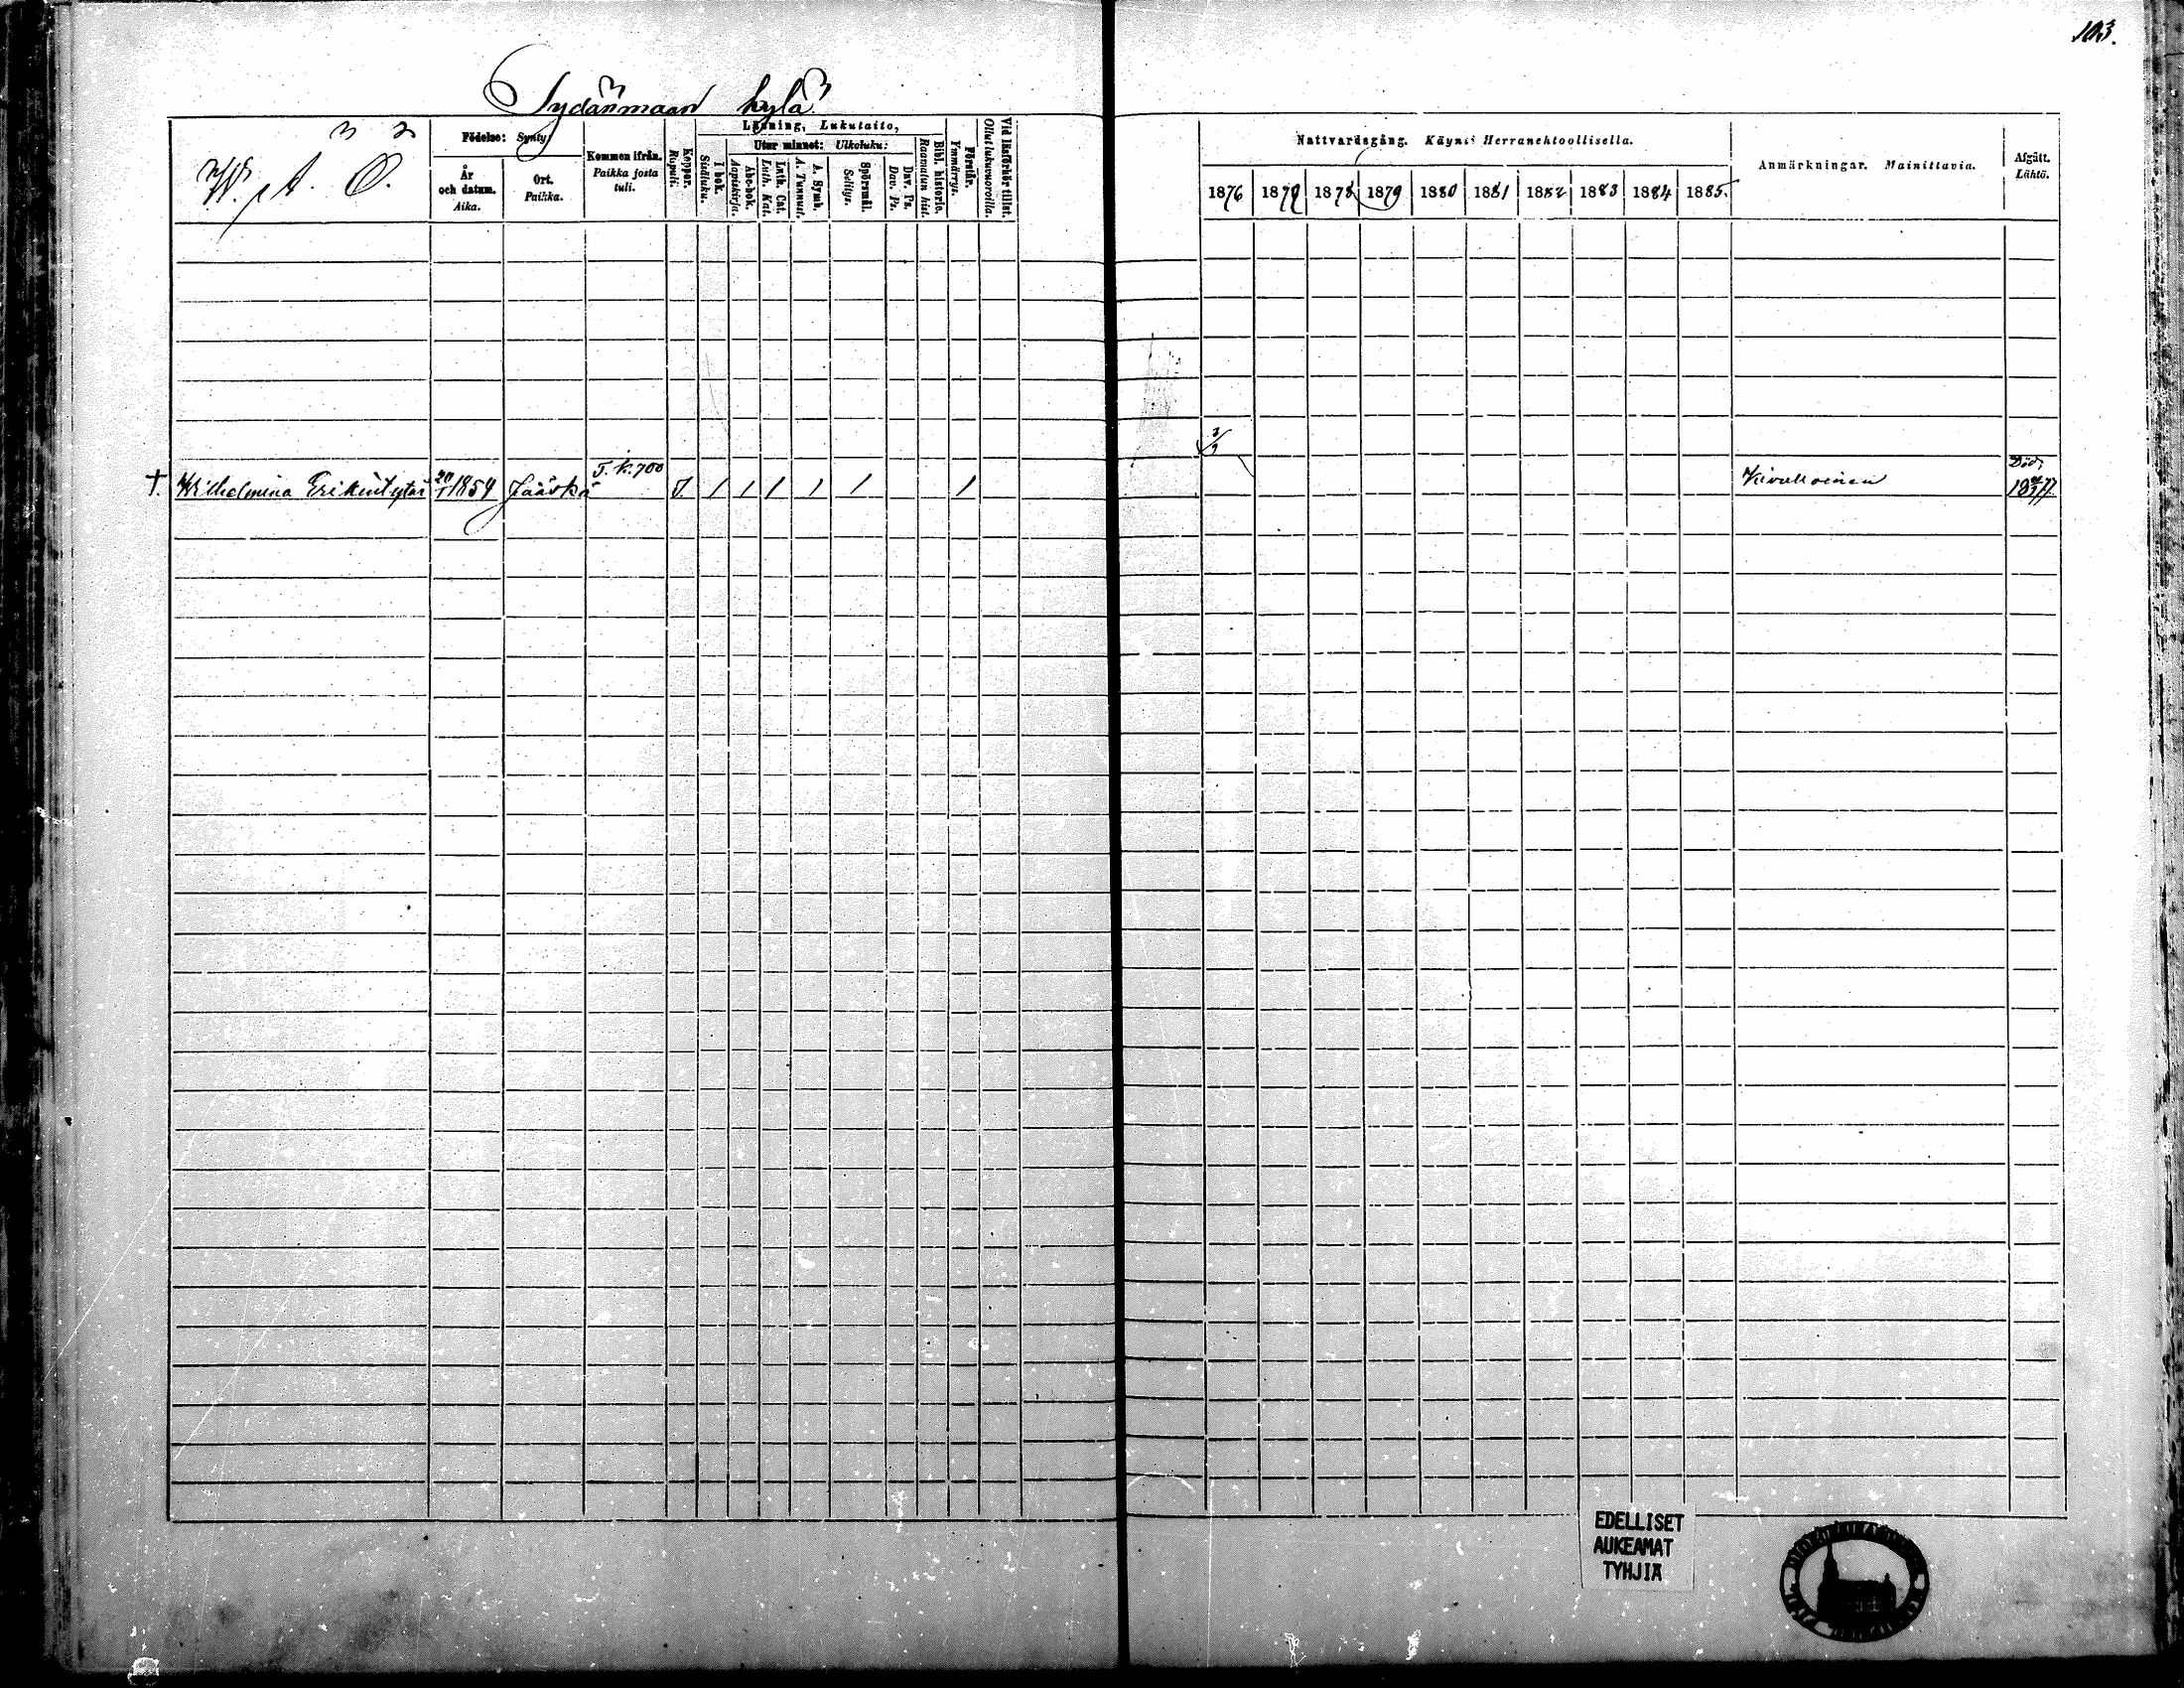 103.
Sydänmaan kylä
W. A. Ö.
Födelse: Synty:
År och datum. Aika.
Ort. Paikka.
Kommen ifrån. Paikka josta tuli.
Koppor. Rupuli.
Läsning, Lukutaito,
I bok. Sisäluku.
Utur minnet: Ulkoluku:
Abc-bok. Aapiskirja.
Luth. Cat. Luth. Kat.
A. Symb. A. Tunnust.
Spörsmål. Selitys.
Dav. Ps. Dav. Ps.
Bibl. historie. Raamatun hist.
Förstår. Ymmärrys.
Vid läsförhör tillst. Ollut lukuvuoroilla.
Nattvardsgång. Käynti Herranehtoollisella.
1876 1877 1878 1879 1880 1881 1882 1883 1884 1885.
Anmärkningar. Mainittavia.
Afgått. Lähtö.
3/9
T. k. 700
Död,
†. Wilhelmina Erikintytär 1854 Jääskä / / / / / / 1877
EDELLISET
AUKEAMAT
TYHJIÄ